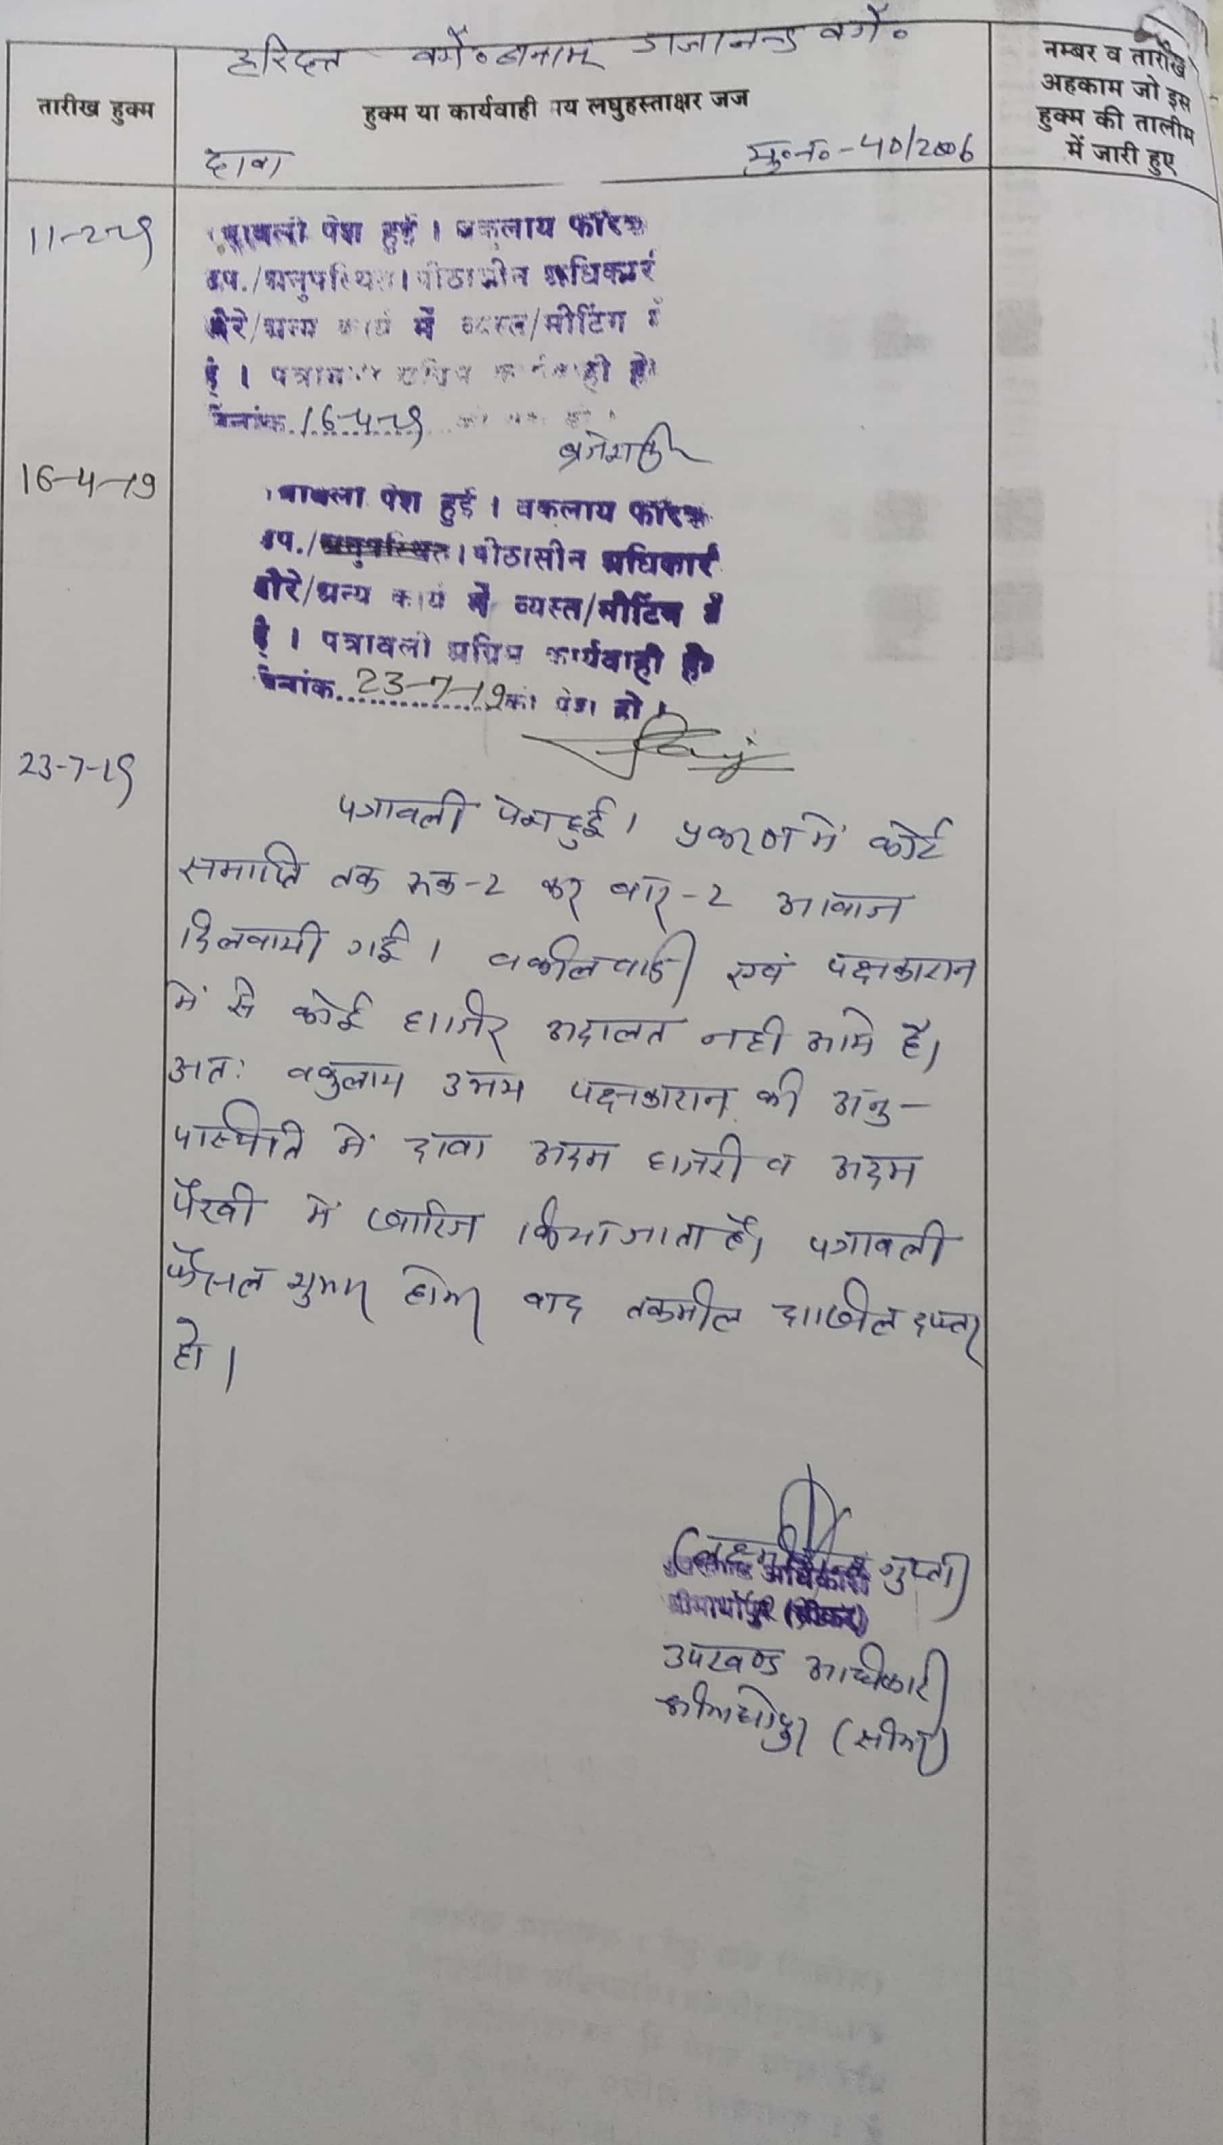 हरिदत्त वगै० बनाम गजानन्द वगै०
तारीख हुक्म
हुक्म या कार्यवाही मय लघुहस्ताक्षर जज
नम्बर व तारीख
अहकाम जो इस
हुक्म की तालीम
में जारी हुए
दावा
मु०न०-40/2006
11-2-19
पत्रावली पेश हुई । वकलाय फरिक
उप./अनुपस्थित। पीठासीन अधिकारी
दौरे/अन्य कार्य में व्यस्त/मीटिंग में
है । पत्रावली अग्रिम कार्यवाही हेतु
दिनांक 16-4-19
16-4-19
पत्रावली पेश हुई । वकलाय फरिक
उप./अनुपस्थित। पीठासीन अधिकारी
दौरे/अन्य कार्य में व्यस्त/मीटिंग में
है । पत्रावली अग्रिम कार्यवाही हेतु
दिनांक 23-7-19 को पेश हो ।
23-7-19
पत्रावली पेश हुई । प्रकरण में कोर्ट
समाप्ति तक रूक-2 कर बार-2 आवाज
दिलवायी गई । वकील वादी एवं पक्षकारान
में से कोई हाजिर अदालत नही आये है।
अतः वकुलाय उभय पक्षकारान की अनु-
पस्थिति में दावा अदम हाजरी व अदम
पैरवी में खारिज किया जाता है। पत्रावली
फैसल शुमार होकर बाद तकमील दाखिल दफ्तर
हो ।
गुप्ता)
उपखण्ड अधिकारी
श्रीमाधोपुर (सीकर)
उपखण्ड अधिकारी
श्रीमाधोपुर (सीकर)